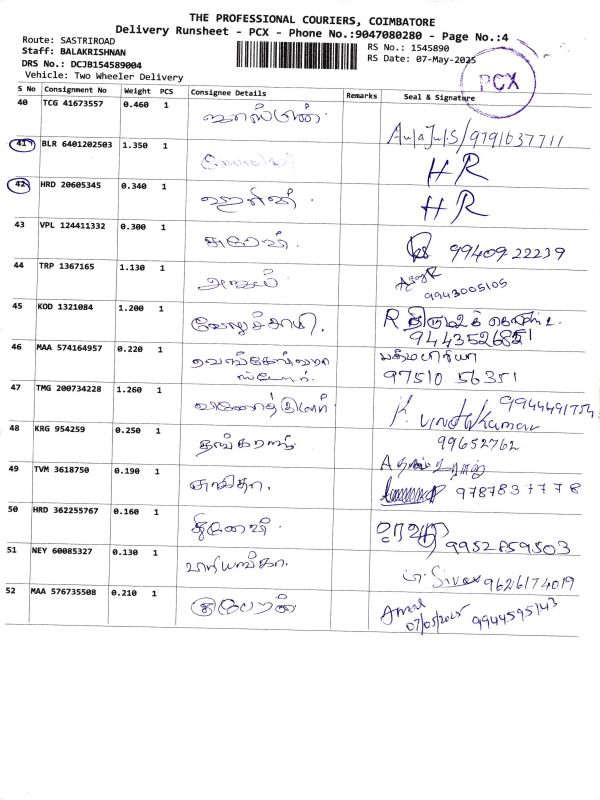 THE PROFESSIONAL COURIERS, COIMBATORE
Delivery Runsheet - PCX - Phone No.:9047080280 - Page No.:4
Route: SASTRIROAD
Staff: BALAKRISHNAN
DRS No.: DCJB154589004
Vehicle: Two Wheeler Delivery
RS No.: 1545890
RS Date: 07-May-2025
PCX
S No Consignment No Weight PCS Consignee Details Remarks Seal & Signature
40 TCG 41673557 0.460 1 9791637711
41 BLR 6401202503 1.350 1 HR
42 HRD 20605345 0.340 1 HR
43 VPL 124411332 0.300 1 சுரேஷ். 99409 22239
44 TRP 1367165 1.130 1 அருண் 9943005105
45 KOD 1321084 1.200 1 வேலுச்சாமி. R
9443526851
46 MAA 574164957 0.220 1 ஸ்டோர். பத்மபிரியா
97510 56351
47 TMG 200734228 1.260 1 K. Vinothkumar 9944491754
48 KRG 954259 0.250 1 தங்கராஜ் 99652762
49 TVM 3618750 0.190 1 கவிதா. 9787837778
50 HRD 362255767 0.160 1 9952859503
51 NEY 60085327 0.130 1 பிரியங்கா. G. Siva 9626174019
52 MAA 576735508 0.210 1 குபேரன் Amal
07/05/2025 9944595143